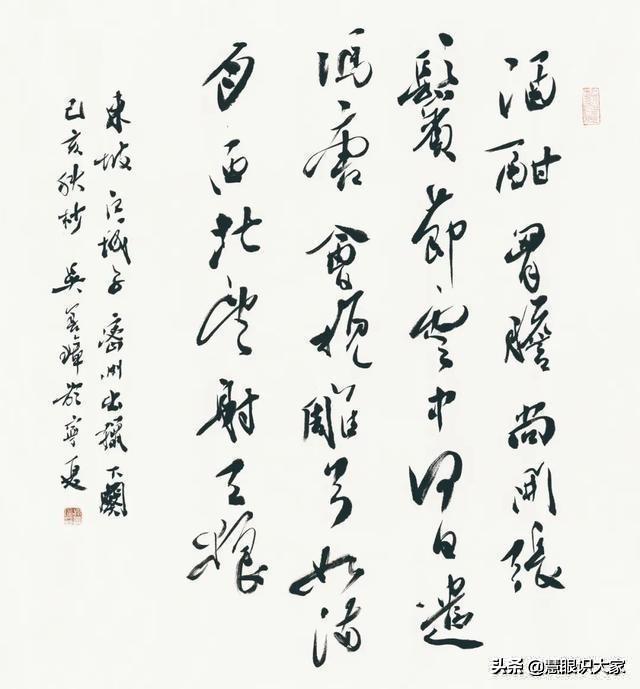 酒酣胷膽尚開張
鬢節雲中何日遣
馮唐會挽雕弓如滿
月西北望射天狼
東坡江城子密州出獵下闋
己亥秋杪吳善璋於寧夏
头条 @慧眼识大家